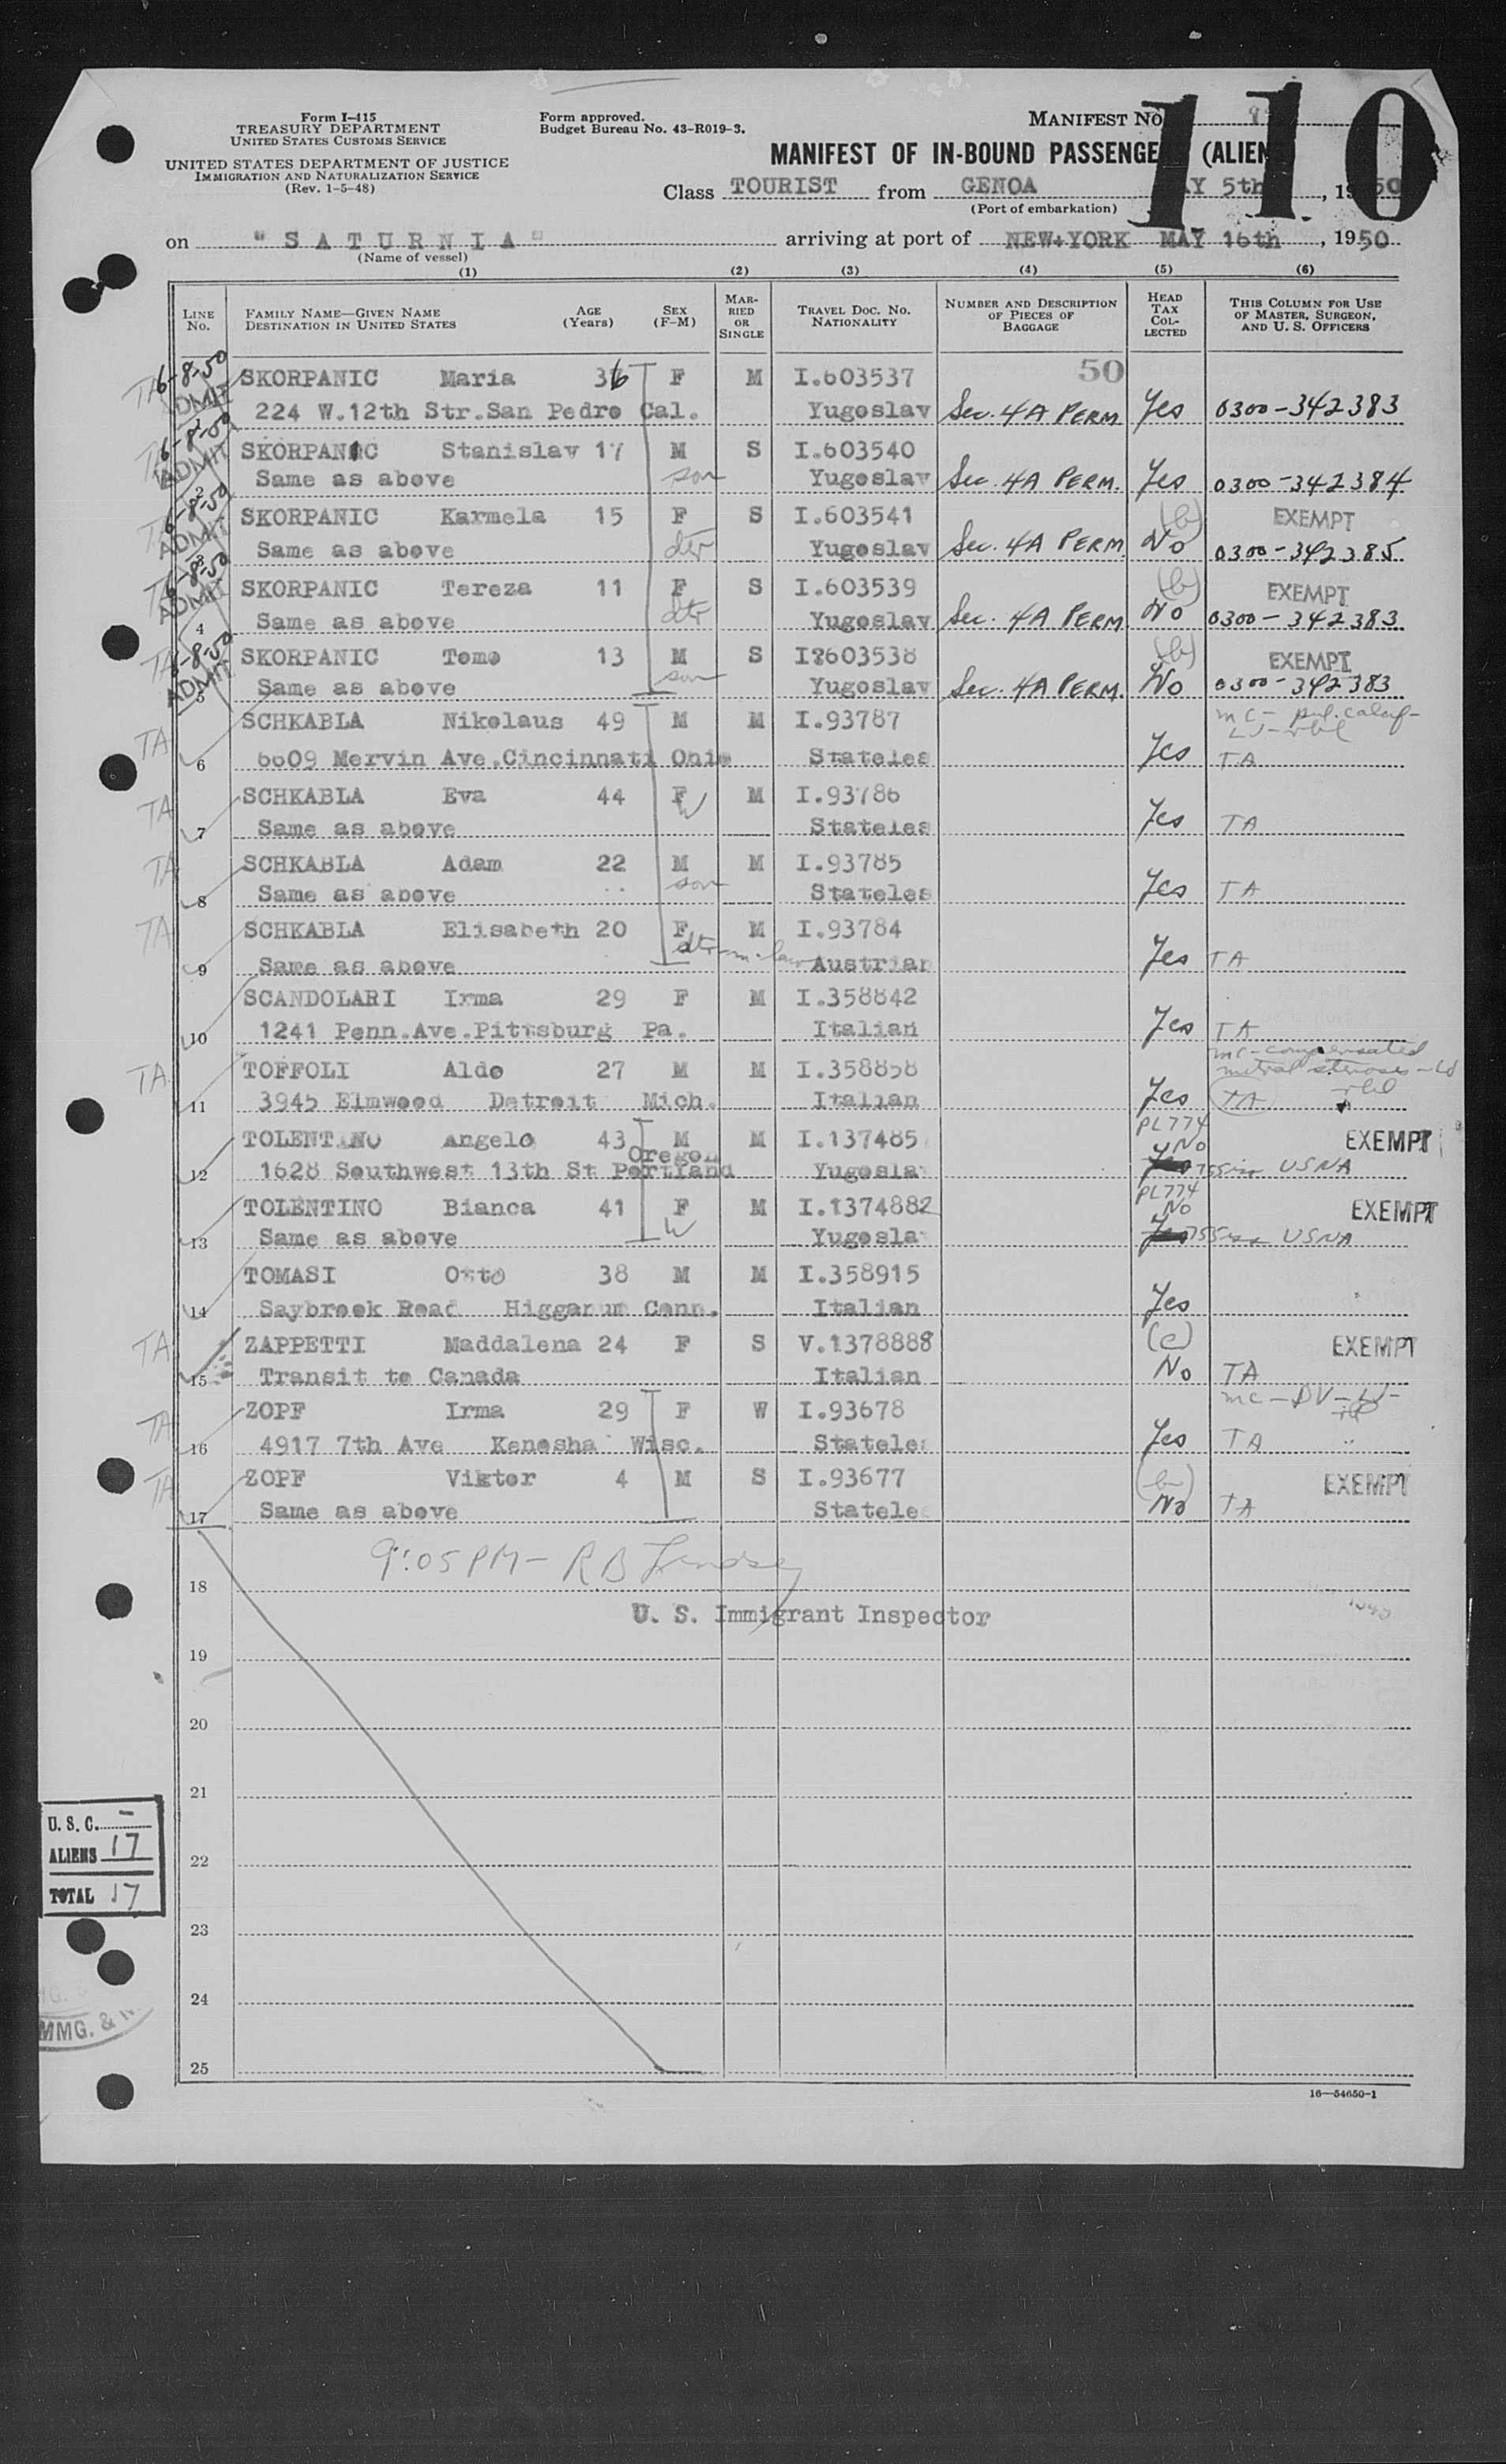 Form I-415
TREASURY DEPARTMENT
UNITED STATES CUSTOMS SERVICE
UNITED STATES DEPARTMENT OF JUSTICE
IMMIGRATION AND NATURALIZATION SERVICE
(Rev. 1-5-48)
Form approved.
Budget Bureau No. 43-R019-3.
MANIFEST NO
110
MANIFEST OF IN-BOUND PASSENGE (ALIEN
Class TOURIST from GENOA AY 5th, 1950
(Port of embarkation)
on "SATURNIA" arriving at port of NEW-YORK MAY 16th, 1950
(Name of vessel)
(1) (2) (3) (4) (5) (6)
LINE No. FAMILY NAME—GIVEN NAME DESTINATION IN UNITED STATES AGE (Years) SEX (F-M) MARRIED OR SINGLE TRAVEL DOC. NO. NATIONALITY NUMBER AND DESCRIPTION OF PIECES OF BAGGAGE HEAD TAX COLLECTED THIS COLUMN FOR USE OF MASTER, SURGEON, AND U. S. OFFICERS
6-8-50 SKORPANIC Maria 36 F M I.603537 50
ADMIT 224 W.12th Str.San Pedro Cal. Yugoslav Sec. 4A PERM Yes 0300-342383
6-8-50 SKORPANIC Stanislav 17 M S I.603540
ADMIT 2 Same as above son Yugoslav Sec. 4A PERM. Yes 0300-342384
6-8-50 SKORPANIC Karmela 15 F S I.603541 (b) EXEMPT
ADMIT 3 Same as above dtr Yugoslav Sec. 4A PERM. No 0300-342385
6-8-50 SKORPANIC Tereza 11 F S I.603539 (b) EXEMPT
ADMIT 4 Same as above dtr Yugoslav Sec. 4A PERM No 0300-342383
6-8-50 SKORPANIC Tomo 13 M S I8603538 (b) EXEMPT
ADMIT 5 Same as above son Yugoslav Sec. 4A PERM. No 0300-342383
TA SCHKABLA Nikolaus 49 M M I.93787 mc-
6 6609 Mervin Ave.Cincinnati Ohio Stateles Yes TA
TA SCHKABLA Eva 44 F W M I.93786
7 Same as above Stateles Yes TA
TA SCHKABLA Adam 22 M M I.93785
8 Same as above son Stateles Yes TA
TA SCHKABLA Elisabeth 20 F M I.93784
9 Same as above dtr-in-law Austrian Yes TA
SCANDOLARI Irma 29 F M I.358842
10 1241 Penn.Ave.Pittsburg Pa. Italian Yes TA
TA TOFFOLI Aldo 27 M M I.358858 mc-compensated mitral stenosis
11 3945 Elmwood Detroit Mich. Italian Yes TA
TOLENTINO Angelo 43 M M I.137485 PL774 No EXEMPT
Oregon
12 1628 Southwest 13th St Portland Yugosla USNA
TOLENTINO Bianca 41 F W M I.1374882 PL774 No EXEMPT
13 Same as above Yugosla USNA
TOMASI Otto 38 M M I.358915
14 Saybrook Road Higganum Conn. Italian Yes
TA ZAPPETTI Maddalena 24 F S V.1378888 (c) EXEMPT
15 Transit to Canada Italian No TA
TA ZOPF Irma 29 F W I.93678 mc-DV-
16 4917 7th Ave Kenosha Wisc. Stateles Yes TA
TA ZOPF Viktor 4 M S I.93677 (b) EXEMPT
17 Same as above Stateles No TA
9:05 PM - RB Lindsey
18
U. S. Immigrant Inspector
19
20
21
U. S. C. -
ALIENS 17
22
TOTAL 17
23
24
MMG. &
25
16—54650-1